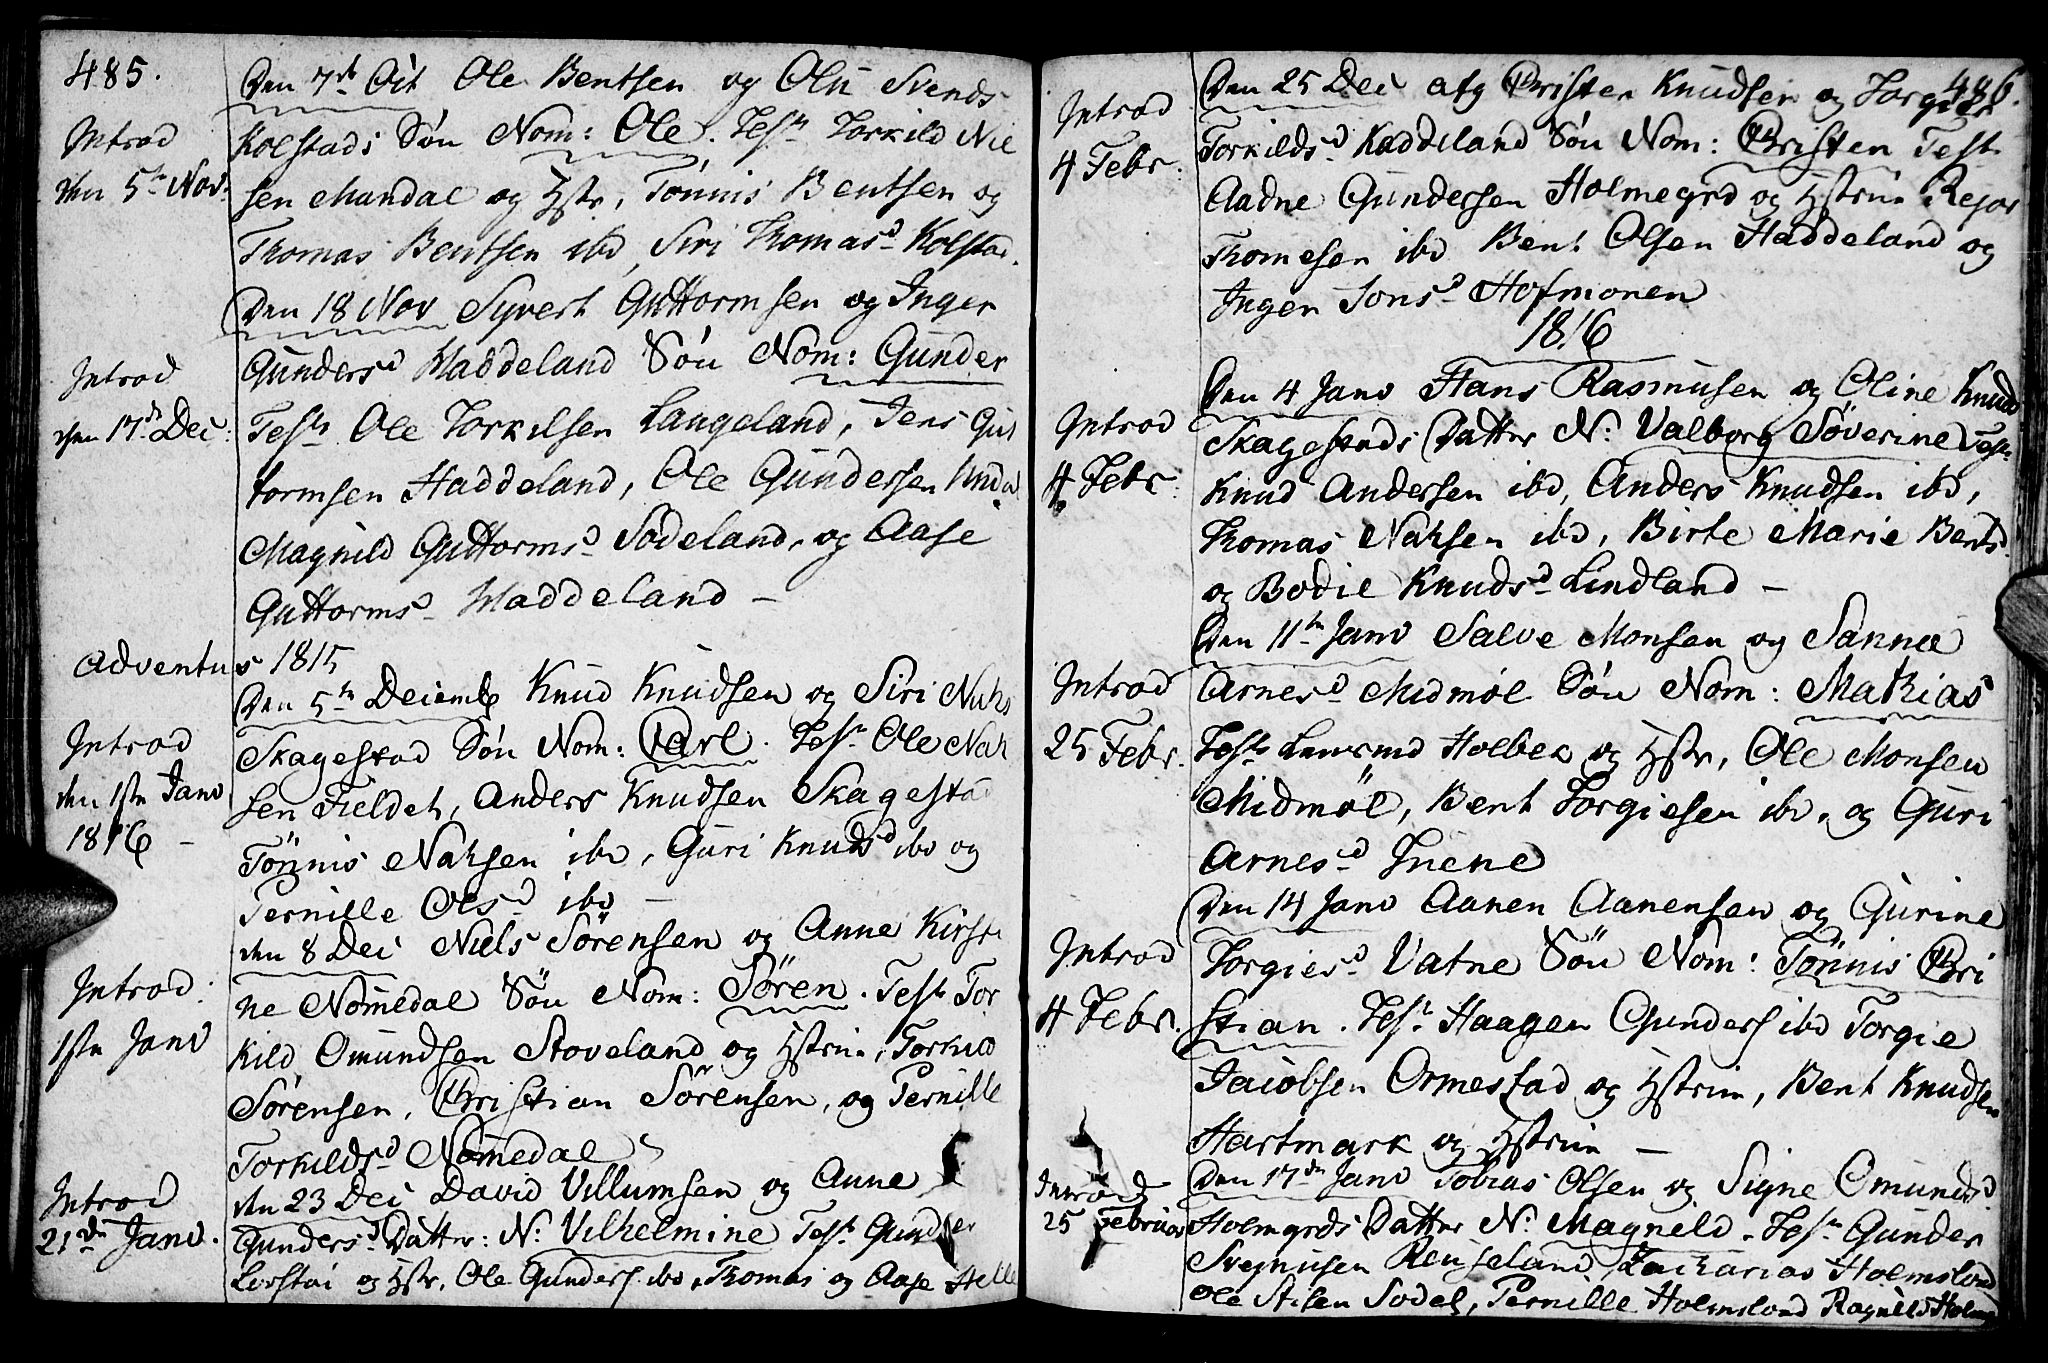 485.
Den 7de Oct Ole Bentsen og Olu Svends
Introd
Kolstads Søn Nom: Ole. Test Torkild Nie
den 5te Nov.
sen Mandal og Hstr, Tønnis Bentsen og
Thomas Bentsen ibd, Siri Thomasd Kolstad.
Den 18 Nov Syvert Guttormsen og Inger
Gundersd Haddeland Søn Nom: Gunder
Introd
den 17de Dec:
Test Ole Torkilsen Langeland, Jens Gut
tormsen Haddeland, Ole Gundersen
Magnild Guttormsd Sodeland, og Aase
Guttormsd Haddeland –
Adventus 1815
Den 5te Decemb Knud Knudsen og Siri Nahs
Introd
Skagestad Søn Nom: Carl. Test Ole Nah
den 1ste Janv
sen Fieldet, Anders Knudsen Skagestad
1816 –
Tönnis Nahsen ibd, Guri Knudsd ibd og
Pernille Olsd ibd –
den 8 Dec Niels Sörensen og Anne Kirsti
Introd:
ne Nomedal Søn Nom: Søren. Test Tor
1ste Janv
kild Omundsen Stoveland og Hstrue, Torkild
Sörensen, Christian Sörensen, og Pernille
Torkildsd Nomedal
Introd
den 23 Dec David Villumsen og Anne
21de Janv.
Gundersd Datter: N: Vilhelmine Test Gunder
og Hstr, Ole Gunders ibd, Thomas og Aase Helle
486.
Den 25 Dec afg Christen Knudsen og Torgier
Introd
4 Febr.
Torkildsd Haddeland Søn Nom: Christen Test
Aadne Gundersen Holmegrd og Hstrue Rejor
Thomesen ibd Bent Olsen Haddeland og
Inger Jonsd Hofmonen
1816
Den 4 Janv Hans Rasmusen og Oline Knud
Introd
Skagestads Datter N: Valborg Söverine Test
4 Febr:
Knud Andersen ibd, Anders Knudsen ibd,
Thomas Nahsen ibd, Birte Marie Bentsd
og Bodil Knudsd Lindland –
Den 11te Janv Salve Monsen og Sanna
Introd
Arnesd Midmøl Søn Nom: Mathias
25 Febr.
Test Holbek og Hstr, Ole Monsen
Midmöl, Bent Torgiesen ibd, og Guri
Arnesd
Den 14 Janv Aanen Aanensen og Gurine
Introd
Torgiesd Vatne Søn Nom: Tönnis Chri
4 Febr.
stian. Test Haagen Gunders ibd Torgie
Jacobsen Ormestad og Hstrue, Bent Knudsen
Hartmark og Hstrue –
Introd
Den 17de Janv Tobias Olsen og Signe Omundsd
25 Februar
Holmgrds Datter N: Magnild. Test Gunder
Svejnusen Zacharias Holmsland
Ole Stisen Sodel, Pernille Holmsland Ragnild